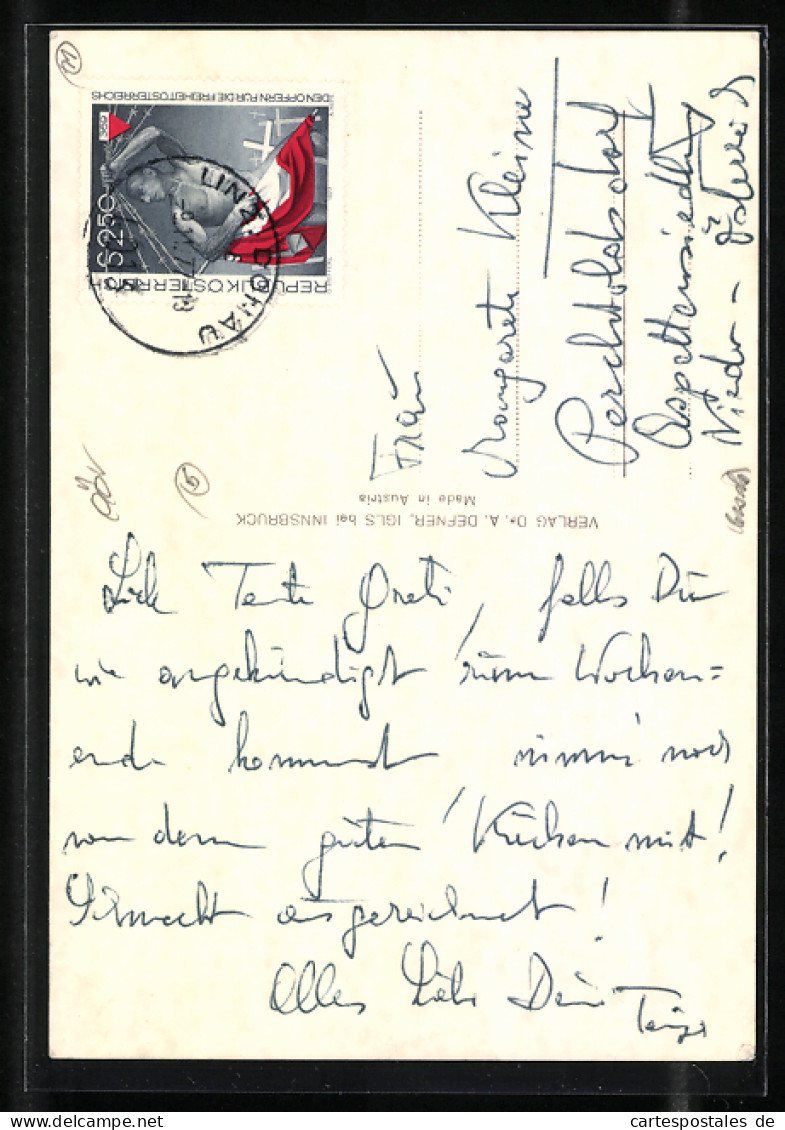 DEN OPFERN FÜR DIE FREIHEIT ÖSTERREICHS
S 2.50
REPUBLIK ÖSTERREICH
LINZ DONAU
Frau
Margarete Kleine
Perchtoldsdorf
Aspettensiedlung
Nieder-Österreich
VERLAG Dr. A. DEFNER, IGLS bei INNSBRUCK
Made in Austria
Liebe Tante Greti, falls Du
wie angekündigt zum Wochen=
ende kommst nimm noch
von dem guten Kuchen mit!
Schmeckt ausgezeichnet!
Alles Liebe Deine
cartespostales de